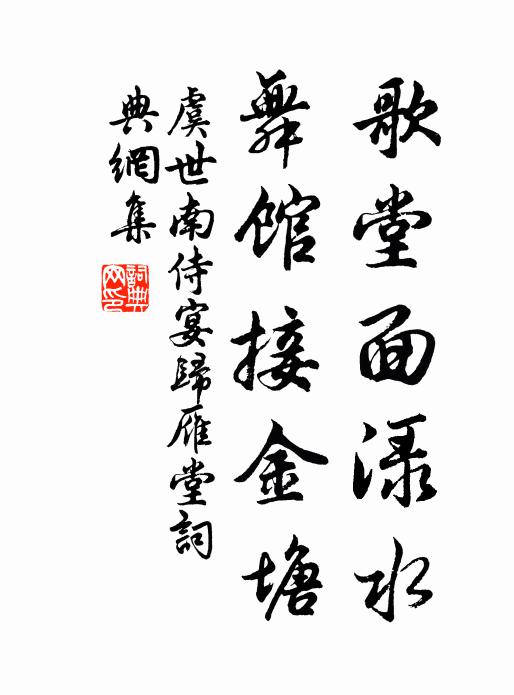 歌堂面渌水
舞馆接金塘
虞世南侍宴歸雁堂詞
典網集
詞典网印